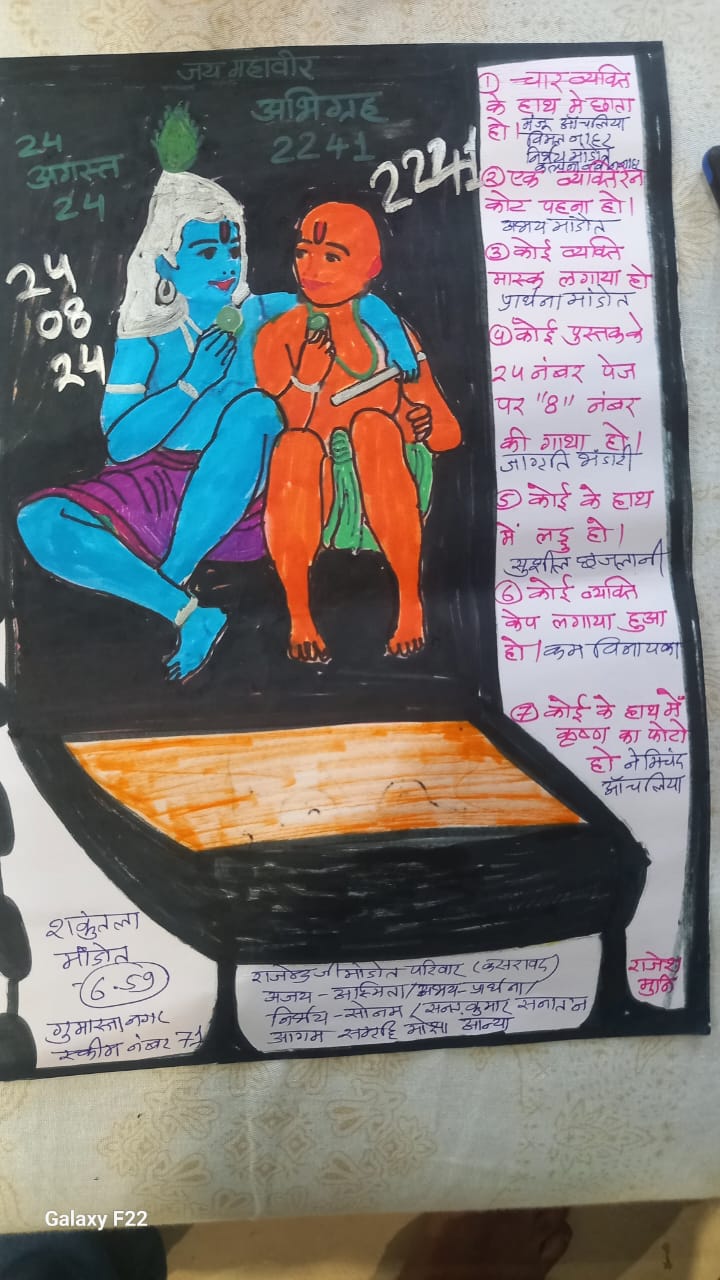 जय महावीर
अभिग्रह
2241
24
अगस्त
24
2241
24
08
24
① चार व्यक्ति
के हाथ मे छाता
हो। आँचलिया
निर्भय मांडोत
② एक व्यक्ति रेन
कोट पहना हो।
अभय मांडोत
③ कोई व्यक्ति
मास्क लगाया हो
प्रार्थना मांडोत
④ कोई पुस्तक के
24 नंबर पेज
पर "8" नंबर
की गाथा हो।
जाग्रति भंडारी
⑤ कोई के हाथ
में लड्डु हो।
सुशील छजलानी
⑥ कोई व्यक्ति
केप लगाया हुआ
हो। विनायका
⑦ कोई के हाथ में
कृष्ण का फोटो
हो नेमिचंद
आँचलिया
शकुंतला
मांडोत
6.59
गुमास्ता नगर
स्कीम नंबर 71
राजेन्द्र जी मांडोत परिवार (कसरावद)
अजय - अस्मिता/अभय-प्रार्थना/
निर्भय - सोनम (सनत कुमार सनातन
आगम समृद्धि
राजेश
मुनि
Galaxy F22